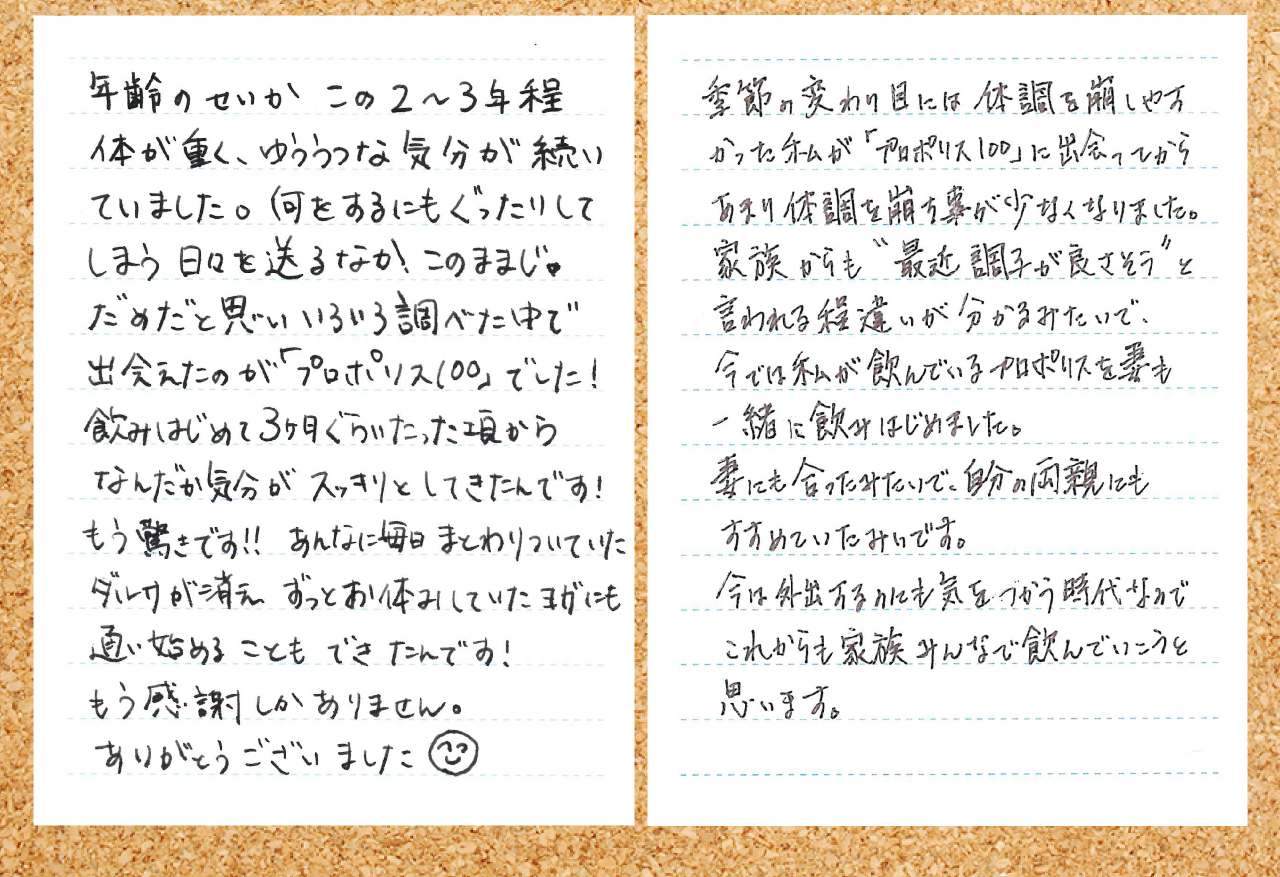 年齢のせいか この2〜3年程
体が重く、ゆううつな気分が続い
ていました。何をするにもぐったりして
しまう日々を送るなか、このままじゃ
だめだと思い いろいろ調べた中で
出会えたのが「プロポリス100」でした!
飲みはじめて3ヶ月ぐらいたった頃から
なんだか気分がスッキリとしてきたんです!
もう驚きです!! あんなに毎日まとわりついていた
ダルサが消え ずっとお休みしていたヨガにも
通い始めることもできたんです!
もう感謝しかありません。
ありがとうございました
季節の変わり目には体調を崩しやす
かった私が「プロポリス100」に出会ってから
あまり体調を崩す事が少なくなりました。
家族からも“最近調子が良さそう”と
言われる程違いが分かるみたいで、
今では私が飲んでいるプロポリスを妻も
一緒に飲みはじめました。
妻にも合ったみたいで、自分の両親にも
すすめていたみいです。
今は外出するのにも気をつかう時代なので
これからも家族みんなで飲んでいこうと
思います。